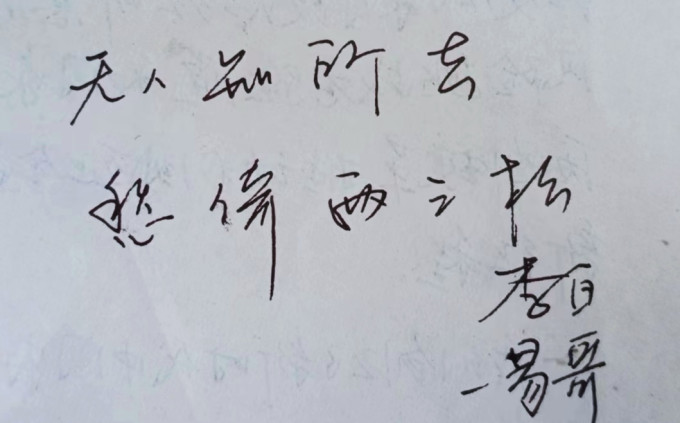 无人知所去
愁倚两三松
李白
一易哥